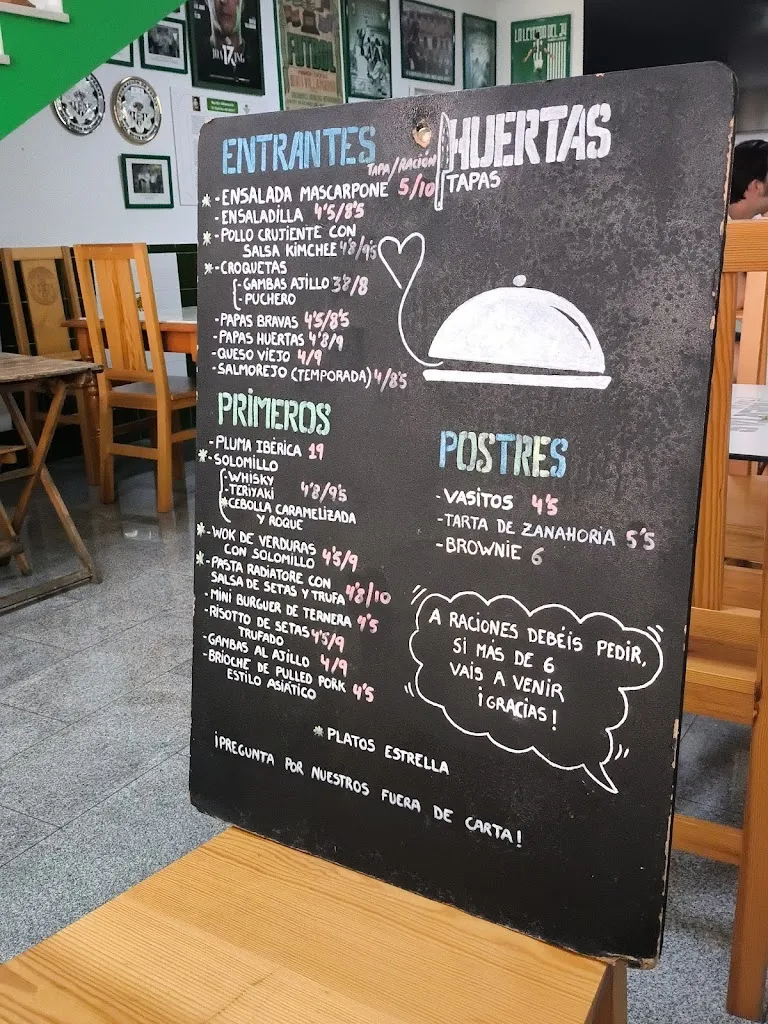 LA LEYENDA DEL
ENTRANTES
TAPA/RACIÓN
HUERTAS
TAPAS
* - ENSALADA MASCARPONE 5/10
- ENSALADILLA 4'5/8'5
* - POLLO CRUJIENTE CON
SALSA KIMCHEE 4'8/9'5
* - CROQUETAS
- GAMBAS AJILLO 3'8/8
- PUCHERO
- PAPAS BRAVAS 4'5/8'5
- PAPAS HUERTAS 4'8/9
- QUESO VIEJO 4/9
- SALMOREJO (TEMPORADA) 4/8'5
PRIMEROS
- PLUMA IBÉRICA 19
* - SOLOMILLO
- WHISKY
- TERIYAKI 4'8/9'5
* CEBOLLA CARAMELIZADA
Y ROQUE
* - WOK DE VERDURAS
CON SOLOMILLO 4'5/9
* - PASTA RADIATORE CON
SALSA DE SETAS Y TRUFA 4'8/10
- MINI BURGUER DE TERNERA 4'5
- RISOTTO DE SETAS 4'5/9
TRUFADO
- GAMBAS AL AJILLO 4/9
- BRIOCHE DE PULLED PORK
ESTILO ASIÁTICO 4'5
POSTRES
- VASITOS 4'5
- TARTA DE ZANAHORIA 5'5
- BROWNIE 6
A RACIONES DEBÉIS PEDIR,
SI MÁS DE 6
VAIS A VENIR
¡GRACIAS!
* PLATOS ESTRELLA
¡PREGUNTA POR NUESTROS FUERA DE CARTA!